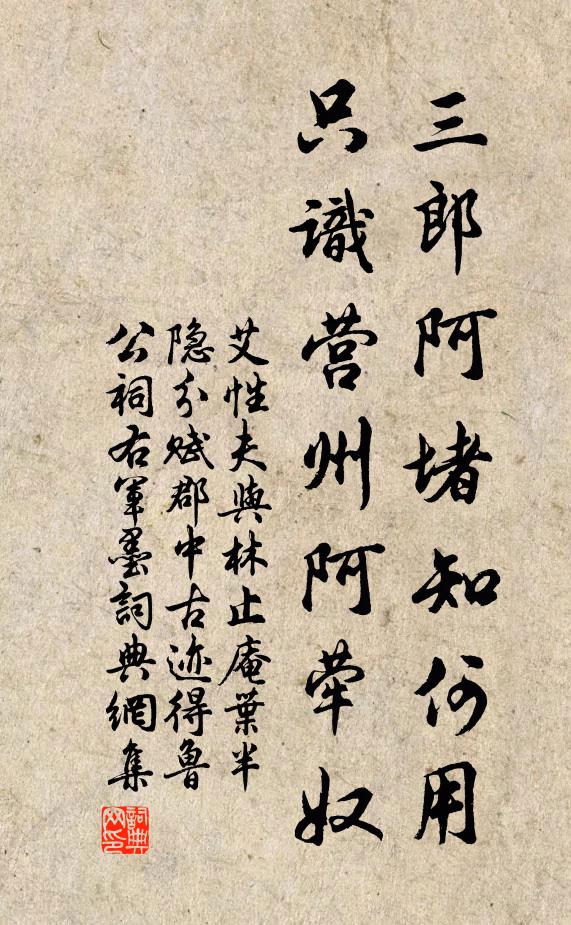 三郎阿堵知何用
只識营州阿荦奴
艾性夫與林止庵葉半
隐分赋郡中古迹得鲁
公祠右軍墨詞典網集
詞典网印